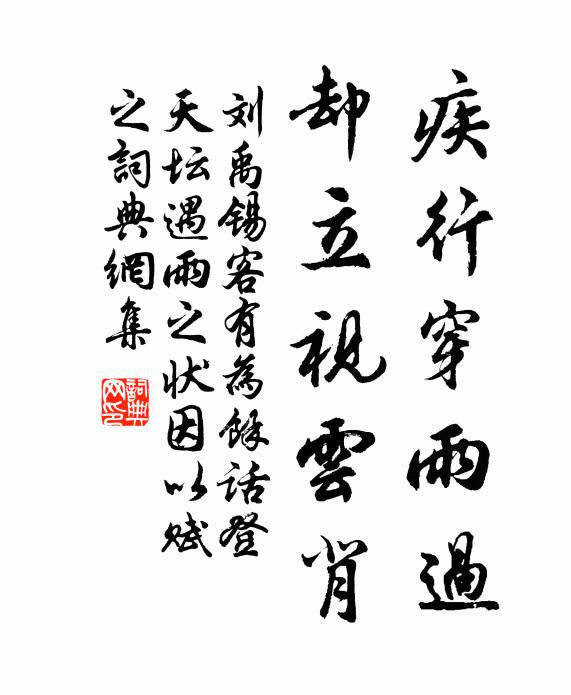 疾行穿雨過
却立視雲背
刘禹锡客有為餘話登
天坛遇雨之状因以赋
之詞典網集
詞典网印